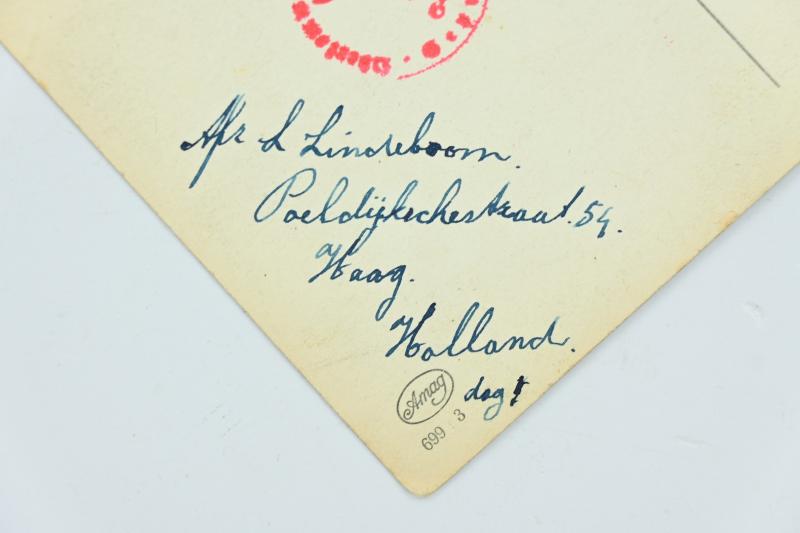 Afz L Lindeboom.
Poeldijkschestraat. 54.
Haag.
Holland.
Amag
dag
699 3